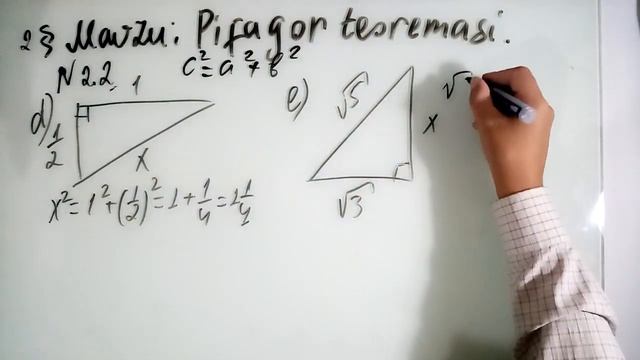 2§ Mavzu: Pifagor teoremasi.
N 2.2. c² = a² + b²
d) 1
1/2
x
x² = 1² + (1/2)² = 1 + 1/4 = 1 1/4
e) √5
x
√3
√